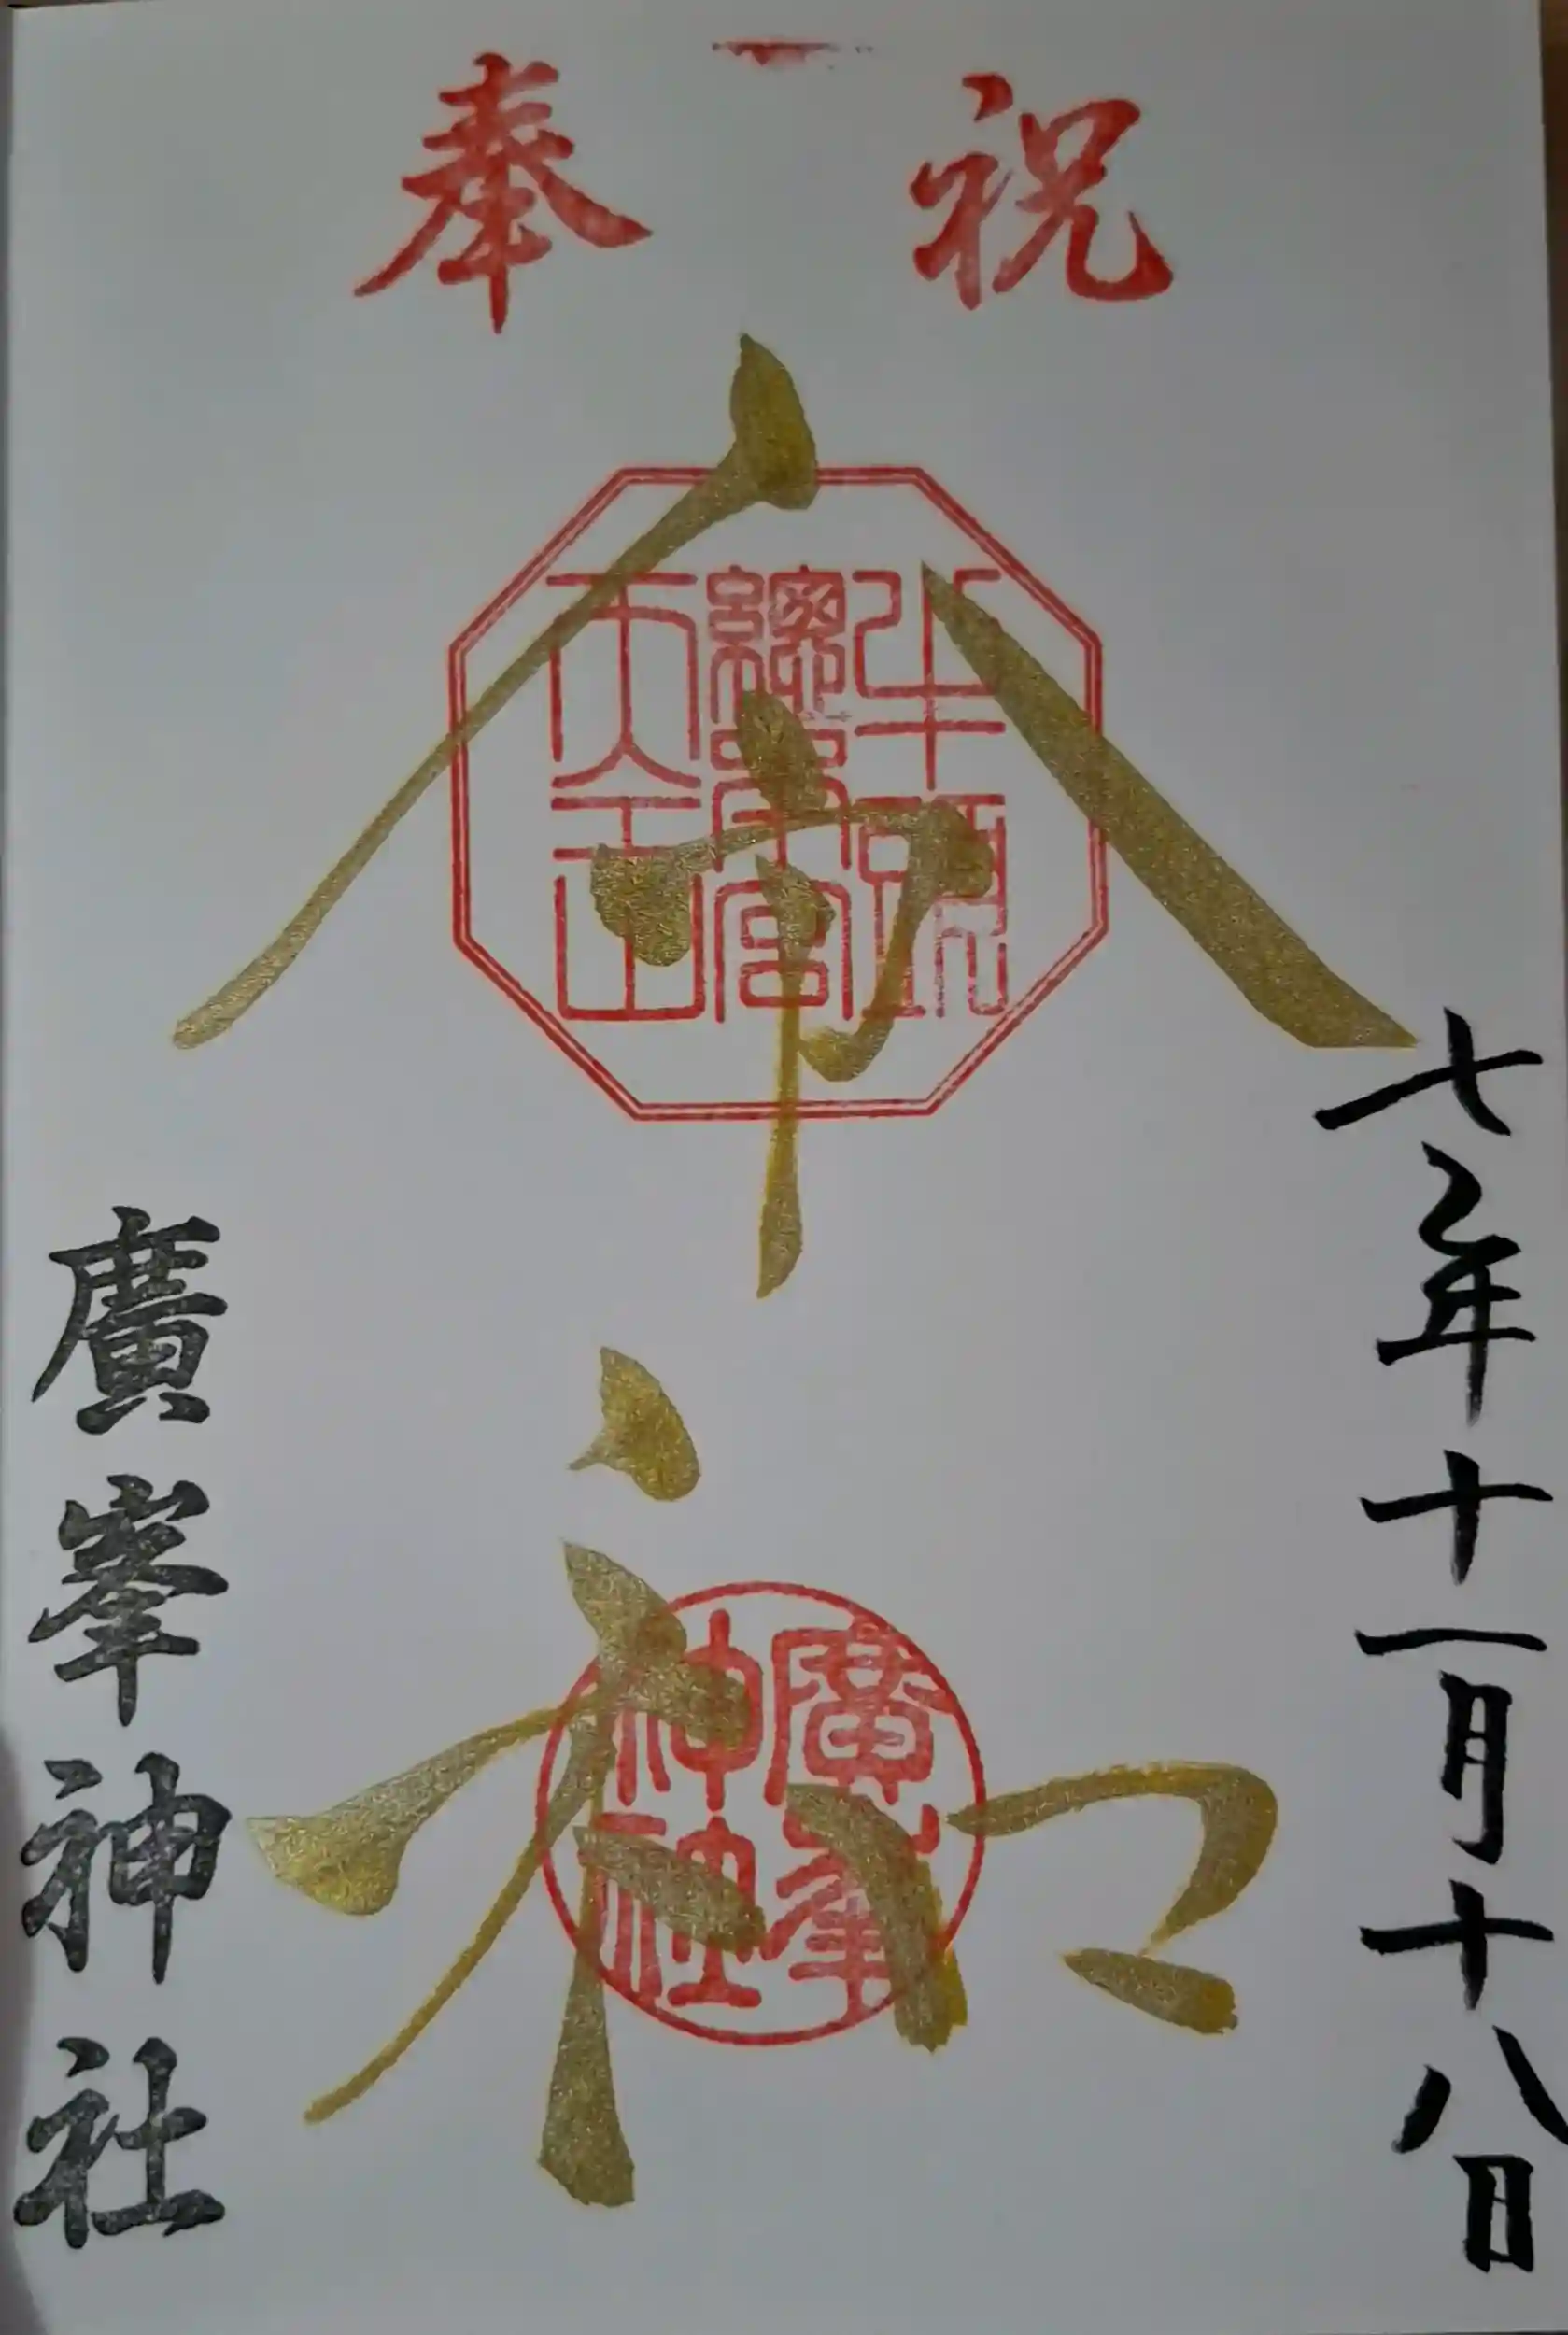 奉祝
令和
七年十一月十八日
牛頭
總本宮
天王
廣峯
神社
廣峯神社